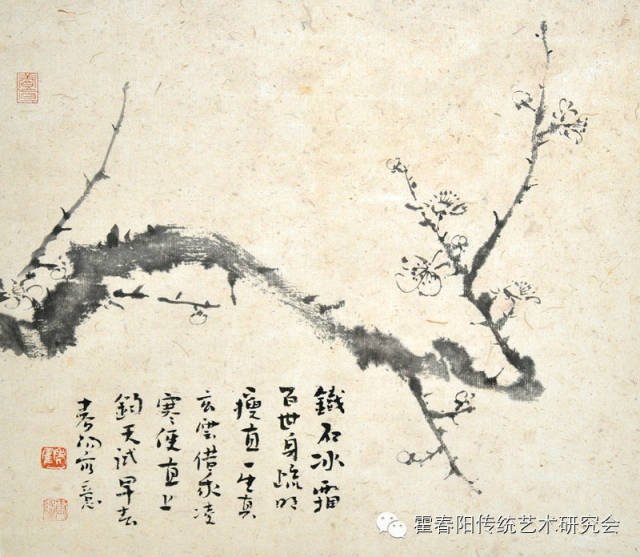 鐵石冰霜
百世身疏明
瘦直一生真
玄雲借我凌
寒便直上
天試早
春陽寫意
霍春阳传统艺术研究会